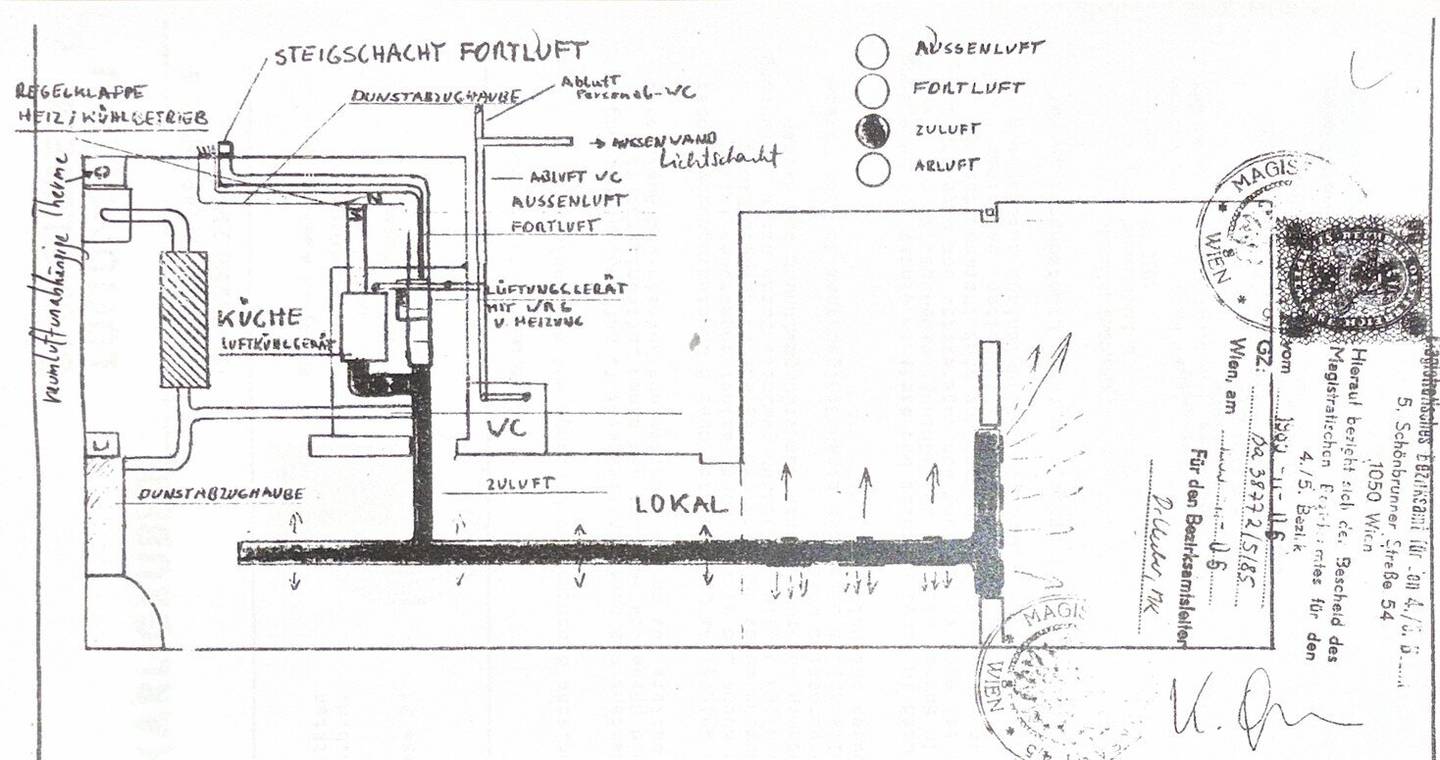 STEIGSCHACHT FORTLUFT
REGELKLAPPE
HEIZ/KÜHLBETRIEB
DUNSTABZUGHAUBE
Abluft
Personal-WC
AUSSENWAND
Lichtschacht
ABLUFT WC
AUSSENLUFT
FORTLUFT
AUSSENLUFT
FORTLUFT
ZULUFT
ABLUFT
raumluftunabhängige Therme
KÜCHE
LUFTKÜHLGERÄT
LÜFTUNGSGERÄT
MIT WRG
U HEIZUNG
WC
DUNSTABZUGHAUBE
ZULUFT
LOKAL
MAGIS
WIEN
8
Magistratisches Bezirksamt für den 4./5.
5, Schönbrunner Straße 54
1050 Wien
Hierauf bezieht sich der Bescheid des
Magistratischen Bezirksamtes für den
4./5. Bezirk
vom
GZ:
Wien, am
Für den Bezirksamtsleiter
MAGIS
WIEN
8
K.